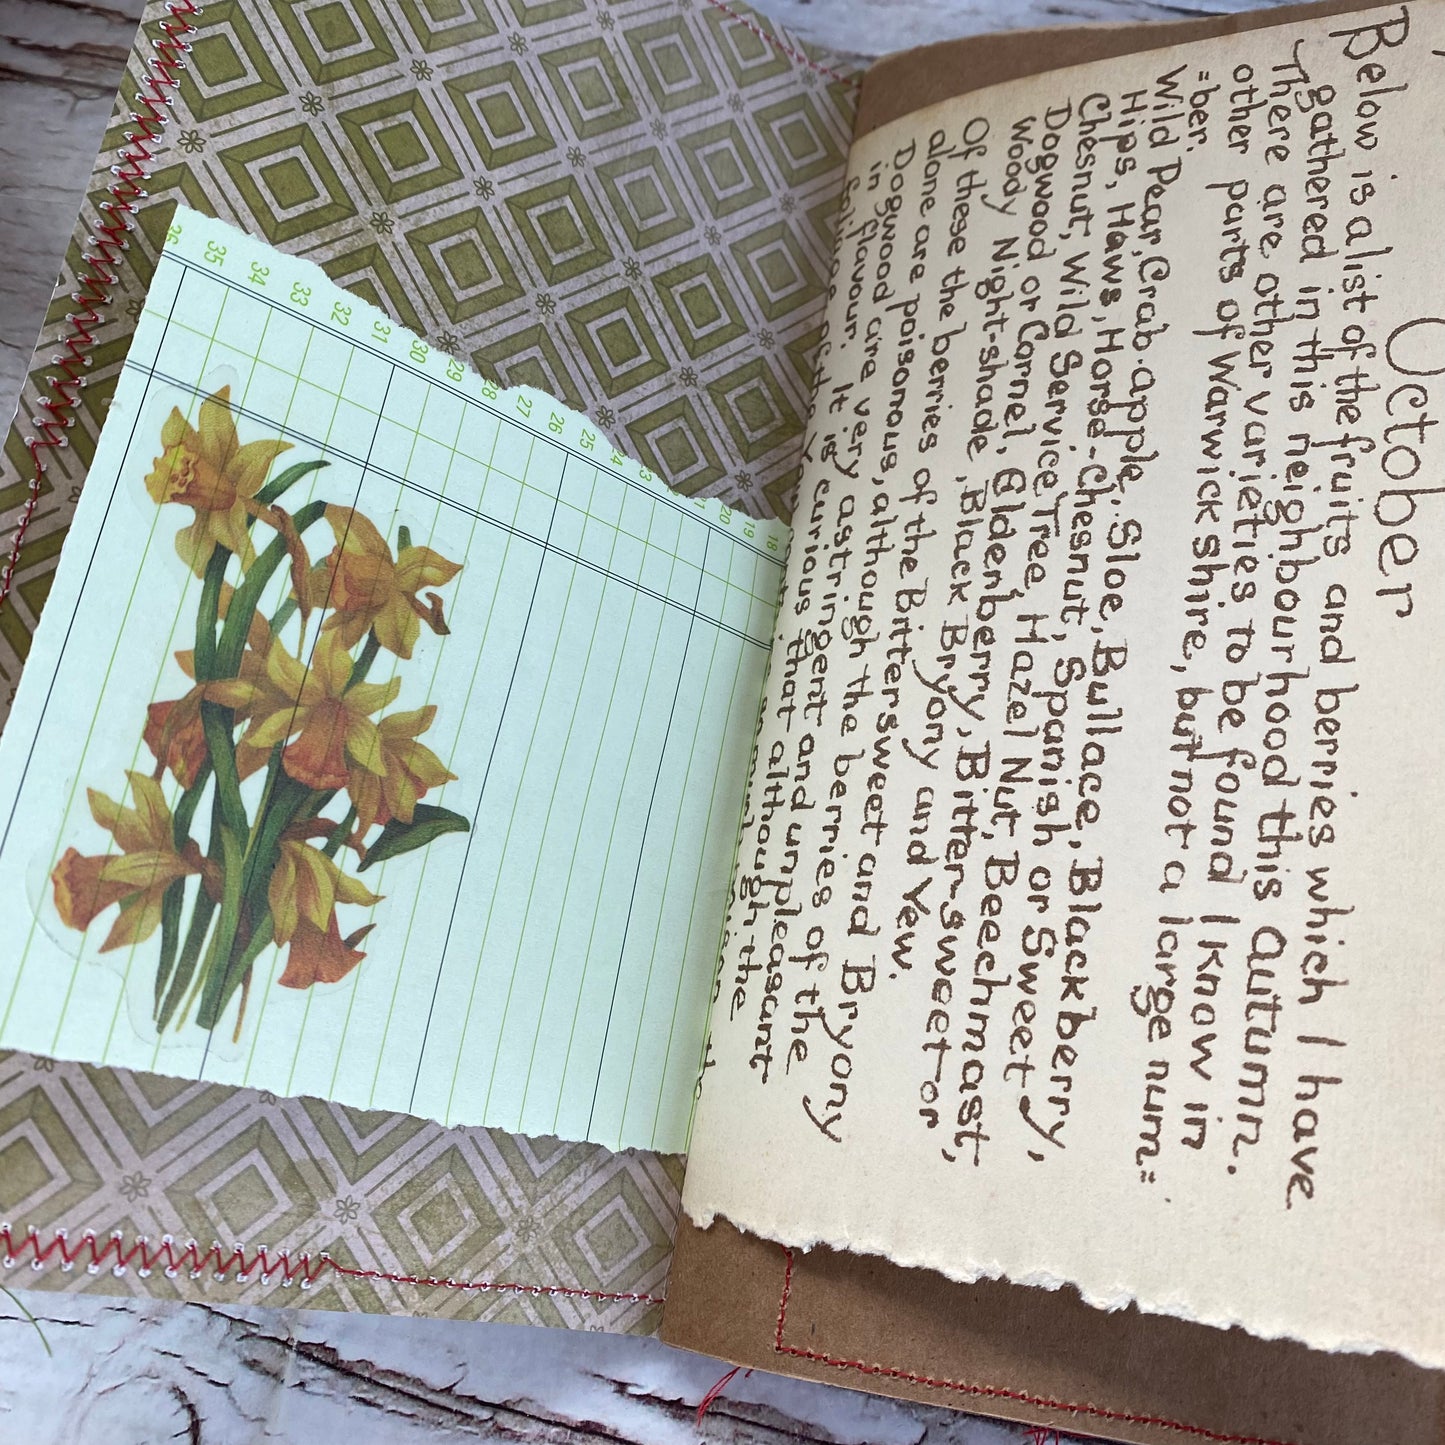 October
Below is a list of the fruits and berries which I have
gathered in this neighbourhood this Autumn.
There are other varieties to be found I know in
other parts of Warwickshire, but not a large num=
=ber.
Wild Pear, Crab-apple, Sloe, Bullace, Blackberry,
Hips, Haws, Horse-Chesnut, Spanish or Sweet-
Chesnut, Wild Service Tree, Hazel Nut, Beechmast,
Dogwood or Cornel, Elderberry, Bitter-sweet or
Woody Night-shade, Black Bryony and Yew.
Of these the berries of the Bittersweet and Bryony
alone are poisonous, although the berries of the
Dogwood are very astringent and unpleasant
in flavour. It is curious that although the
foliage of the
36
35
34
33
32
31
30
29
28
27
26
25
24
23
21
20
19
18